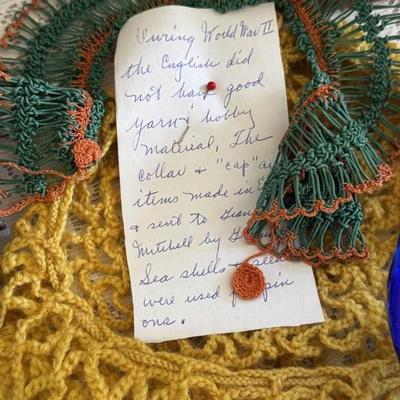 During World War II
the English did
not have good
yarn & hobby
material. The
collar & "cap" a
items made in E
& sent to Gran
Mitchell by G
Sea shells & seed
were used f pin
ons.